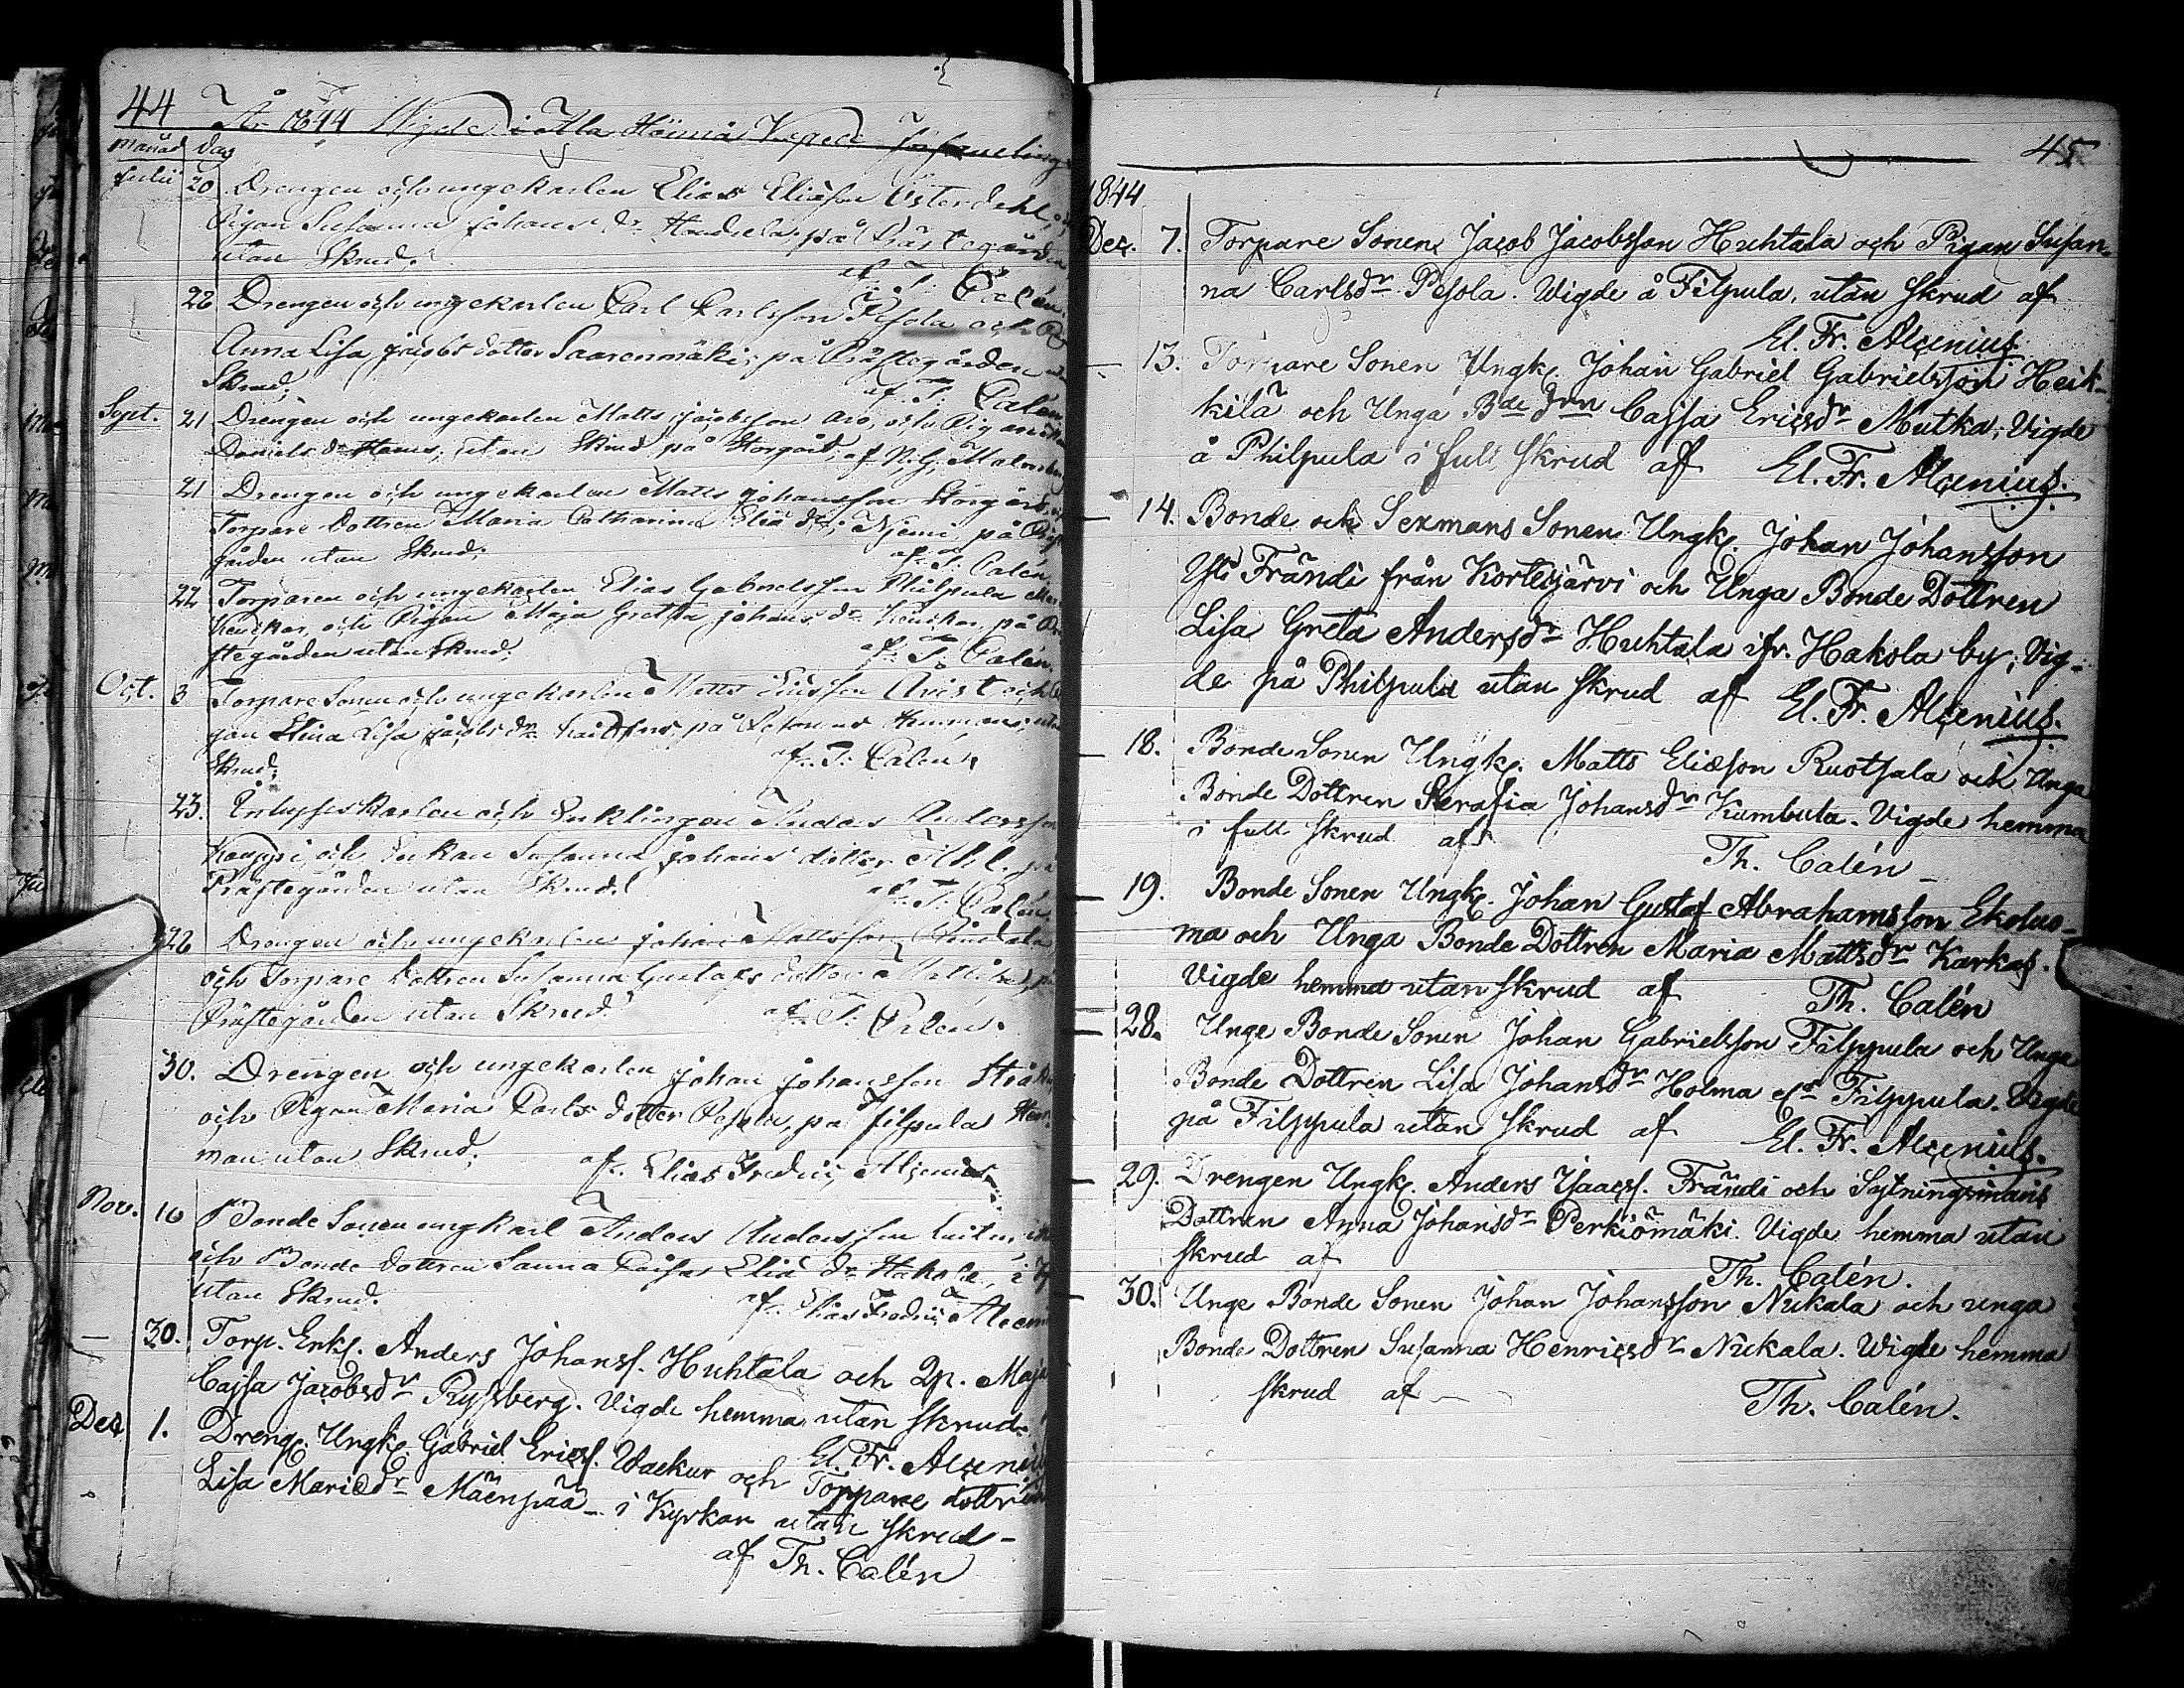 44 År 1844 Wigde i Ala Härmä Capell Församling
Månad Dag
Julii 20 Drengen och ungekarlen Elias Eliasson Österdahl, och
Pigan Susanna Johans dr på Prästegården
utan Skrud; af T. Calén.
22 Drengen och ungekarlen Carl Carlsson Pesola och
Anna Lisa Jacobs dotter Saarenmäki, på Prästegården
Skrud; af T. Calén
Sept. 21 Drengen och ungekarlen Matts Jacobsson Aro, och Pigan
Daniels dr Hanes, utan Skrud på Storgård, af
21 Drengen och ungekarlen Matts Johansson Storgård,
Torpare Dottren Maria Catharina Elia dr; Njemi, på
gården utan Skrud; af T. Calén.
22 Torparen och ungekarlen Elias Gabrielsson Philpula
och Pigan Maja Gretha Johans dr på
stegården utan Skrud; af T. Calén.
Oct. 3 Torpare Sonen och ungekarlen Matts Ericsson Qvist och
gan Stina Lisa Jacobs dr på Hemman
Skrud; af T. Calén.
23. Inhyses karlen och Enklingen Anders Andersson
Kauppi, och Enkan Susanna Johans dotter på
Prästegården utan Skrud. af T. Calén.
22 Drengen och ungekarlen Johan Mattsson
och Torpare Dottren Susanna Gustafs dotter
Prästegården utan Skrud. af T. Calén.
30. Drengen och ungekarlen Johan Johansson
och Pigan Maria Carls dotter Pesola, på Filpula Hem-
man utan Skrud, af Elias Fredric Alcenius.
Nov. 10 Bonde Sonen ungkarl Anders Andersson
och Bonde dottren Sanna Caisa Elia dr Hakola,
utan Skrud. af Elias Fredric Alcenius
— 30. Torp. Enkl. Anders Johanss. Huhtala och Qp. Maja
Cajsa Jacobsdr Ryssberg. Vigde hemma utan skrud.
El. Fr. Alcenius
Dec. 1. Dreng. Ungk. Gabriel Ericss. Wackur och Torpare dottren
Lisa Mariedr Mäenpää – i Kyrkan utan skrud –
af Th. Calén
45
1844
Dec. 7. Torpare Sonen Jacob Jacobsson Huhtala och Pigan Susan-
na Carlsdr Pesola. Wigde å Filpula, utan skrud af
El. Fr. Alcenius.
— 13. Torpare Sonen Ungk. Johan Gabriel Gabrielsson Heik-
kilä och Unga Bde Drn Cajsa Ericsdr Mutka; Vigde
å Philpula i full skrud af El. Fr. Alcenius.
— 14. Bonde och Sexmans Sonen Ungk. Johan Johansson
Yli Frändi från Kortesjärvi och Unga Bonde Dottren
Lisa Greta Andersdr Huhtala ifr. Hakola by; Vig-
de på Philpula utan skrud af El. Fr. Alcenius.
— 18. Bonde Sonen Ungk. Matts Eliæson Ruotsala och Unga
Bonde Dottren Serafia Johansdr Kumbula. Vigde hemma
i full skrud af Th. Calén –
— 19. Bonde Sonen Ungk. Johan Gustaf Abrahamsson Ekoluo-
ma och Unga Bonde Dottren Maria Mattsdr Karkas.
Vigde hemma utan skrud af Th. Calén
— 28. Unge Bonde Sonen Johan Gabrielsson Filppula och Unga
Bonde Dottren Lisa Johansdr Holma Filppula. Vigde
på Filppula utan skrud af El. Fr. Alcenius.
— 29. Drengen Ungk. Anders Isaacss. Frändi och Sytningsmans
Dottren Anna Johansdr Perkiömäki. Vigde hemma utan
skrud af Th. Calén.
— 30. Unge Bonde Sonen Johan Johansson Nukala och unga
Bonde Dottren Susanna Henricsdr Nukala. Wigde hemma
skrud af – Th. Calén.